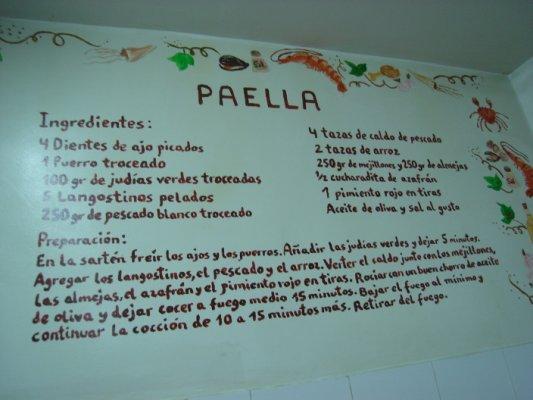 PAELLA
Ingredientes:
4 Dientes de ajo picados
1 Puerro troceado
100 gr de judías verdes troceadas
5 Langostinos pelados
250 gr de pescado blanco troceado
4 tazas de caldo de pescado
2 tazas de arroz
250 gr de mejillones y 250 gr de almejas
½ cucharadita de azafrán
1 pimiento rojo en tiras
Aceite de oliva y sal al gusto
Preparación:
En la sartén freir los ajos y los puerros. Añadir las judías verdes y dejar 5 minutos.
Agregar los langostinos, el pescado y el arroz. Verter el caldo junto con los mejillones,
las almejas, el azafrán y el pimiento rojo en tiras. Rociar con un buen chorro de aceite
de oliva y dejar cocer a fuego medio 15 minutos. Bajar el fuego al mínimo y
continuar la cocción de 10 a 15 minutos más. Retirar del fuego.